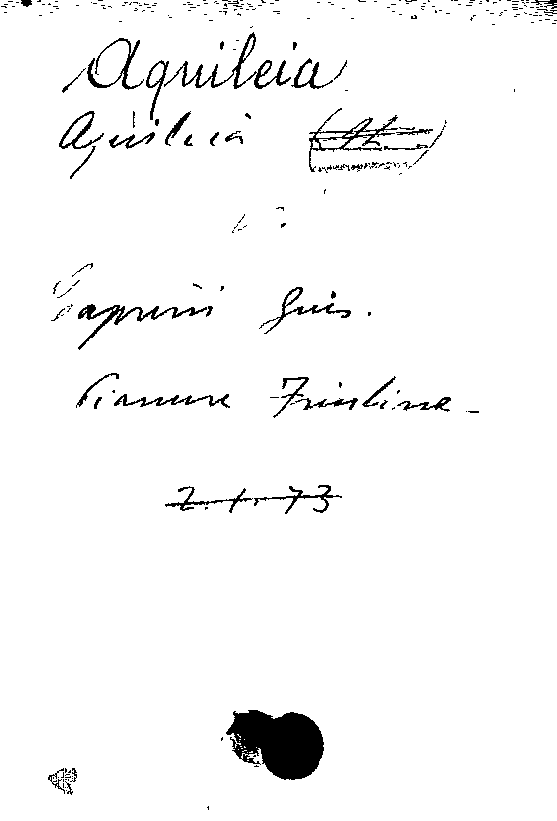 Aquileia
Aquileia
Caprini Giis.
Pianura Friulina
2.1.73